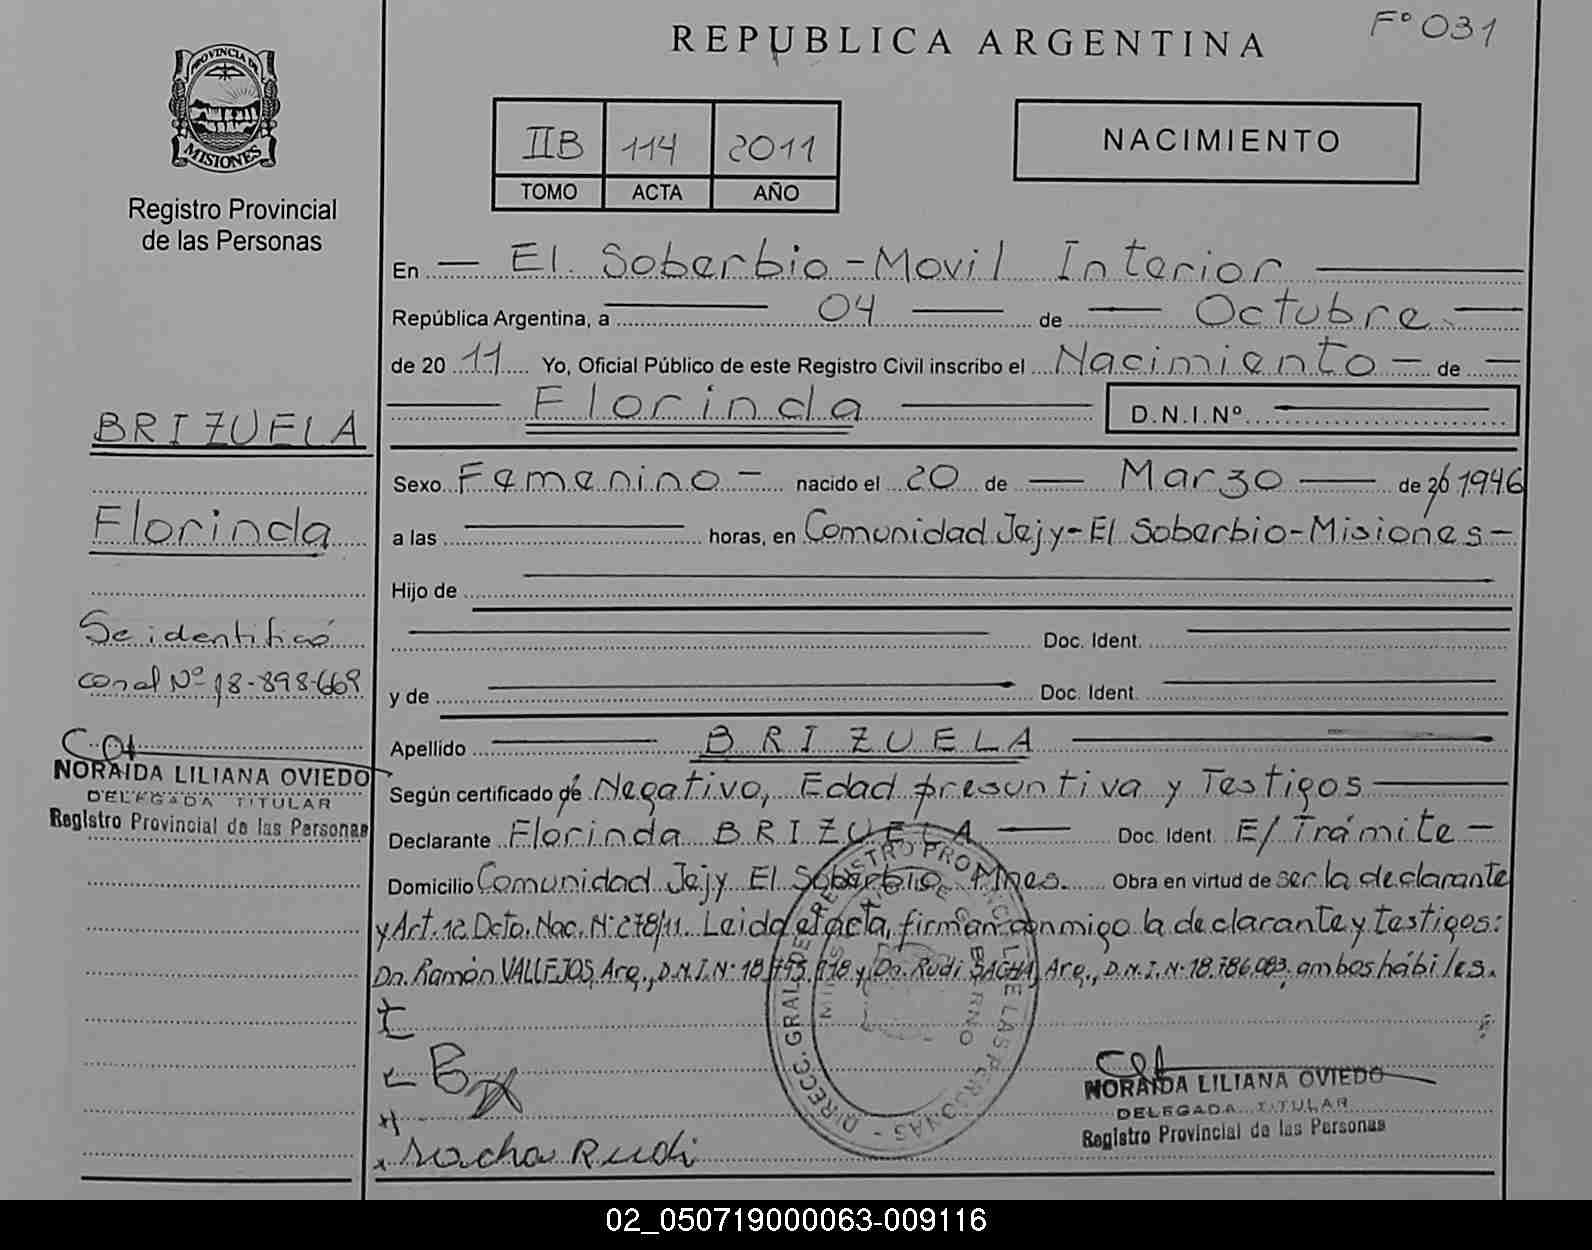 F° 031
REPUBLICA ARGENTINA
PROVINCIA DE
MISIONES
Registro Provincial
de las Personas
IIB 114 2011
TOMO ACTA AÑO
NACIMIENTO
En — El Soberbio - Movil Interior —
República Argentina, a — 04 — de — Octubre —
de 20 11 Yo, Oficial Público de este Registro Civil inscribo el Nacimiento - de -
— Florinda — D.N.I.Nº —
BRIZUELA
Florinda
Se identificó
con el Nº 18-898-669
NORAIDA LILIANA OVIEDO
DELEGADA TITULAR
Registro Provincial de las Personas
Sexo Femenino - nacido el 20 de — Marzo — de 1946
a las — horas, en Comunidad Jejy - El Soberbio - Misiones -
Hijo de —
— Doc. Ident. —
y de — Doc. Ident. —
Apellido — BRIZUELA —
Según certificado de Negativo, Edad presuntiva y Testigos —
Declarante Florinda BRIZUELA — Doc. Ident. E/Trámite -
Domicilio Comunidad Jejy El Soberbio Mnes. Obra en virtud de ser la declarante
y Art. 12 Dcto. Nac. N° 278/11. Leida el acta, firman conmigo la declarante y testigos:
Dn. Ramón VALLEJOS, Arg., D.N.I. N° 18. y Dn. Rudi SACHA, Arg., D.N.I. N° 18.786.083, ambos hábiles.
DIRECC. GRAL. DE REGISTRO PROVINCIAL DE LAS PERSONAS
Sacha Rudi
NORAIDA LILIANA OVIEDO
DELEGADA TITULAR
Registro Provincial de las Personas
02_050719000063-009116